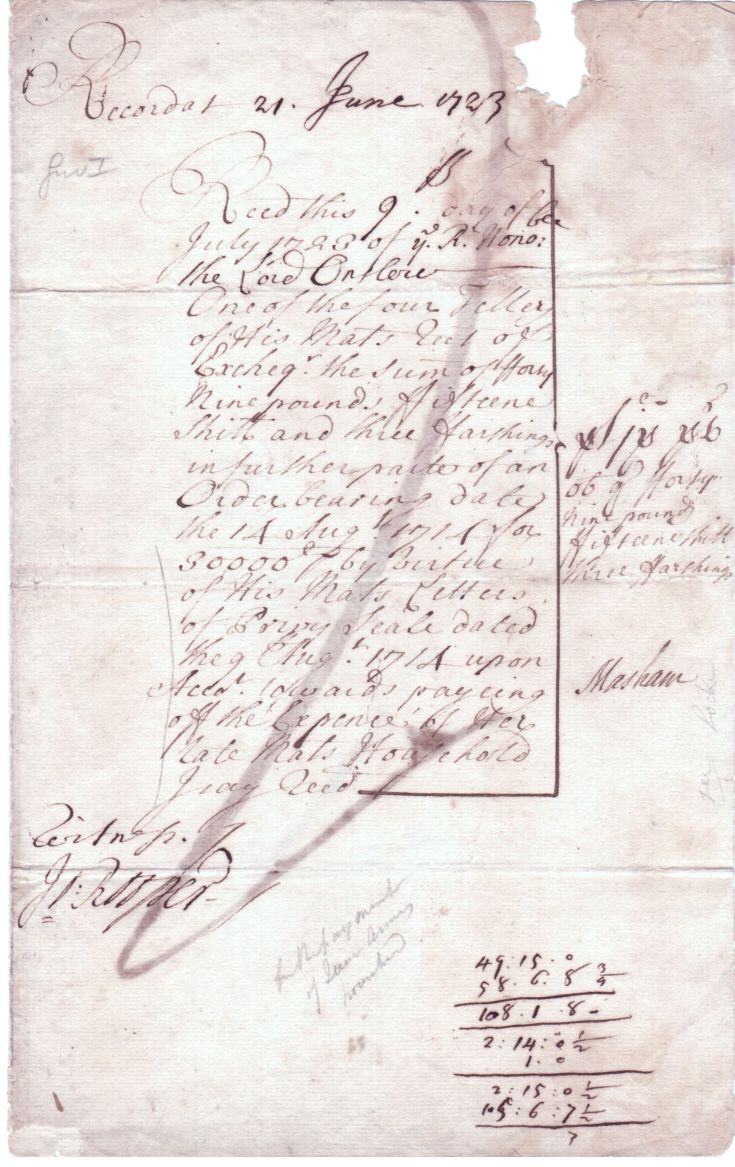 Recordat 21. June 1723
Geo I
Recd this 9. day of
July 1723 of ye. R. Hono:
the Lord Onslow
One of the four Tellers
of His Mats Rect of
Excheqr. the sum of fforty
Nine pounds ffifteene
Shill and three ffarthings
in further parte of an
Order bearing date
the 14 Augt. 1714 for
30000 by Virtue
of His Mats Letters
of Privy Seale dated
the 9 Augt. 1714 upon
Accot. towards payeing
off the Expence of Her
late Mats Household
I say Recd
ob qr fforty
Nine pounds
ffifteene shill
three ffarthings
Masham
Witness.
Roper
In Repayment
of Queen Annes
household
49:15:0
58.6.8 3/4
108.1.8-
2:14:0 1/2
1.0
2:15:0 1/2
105:6:7 1/2